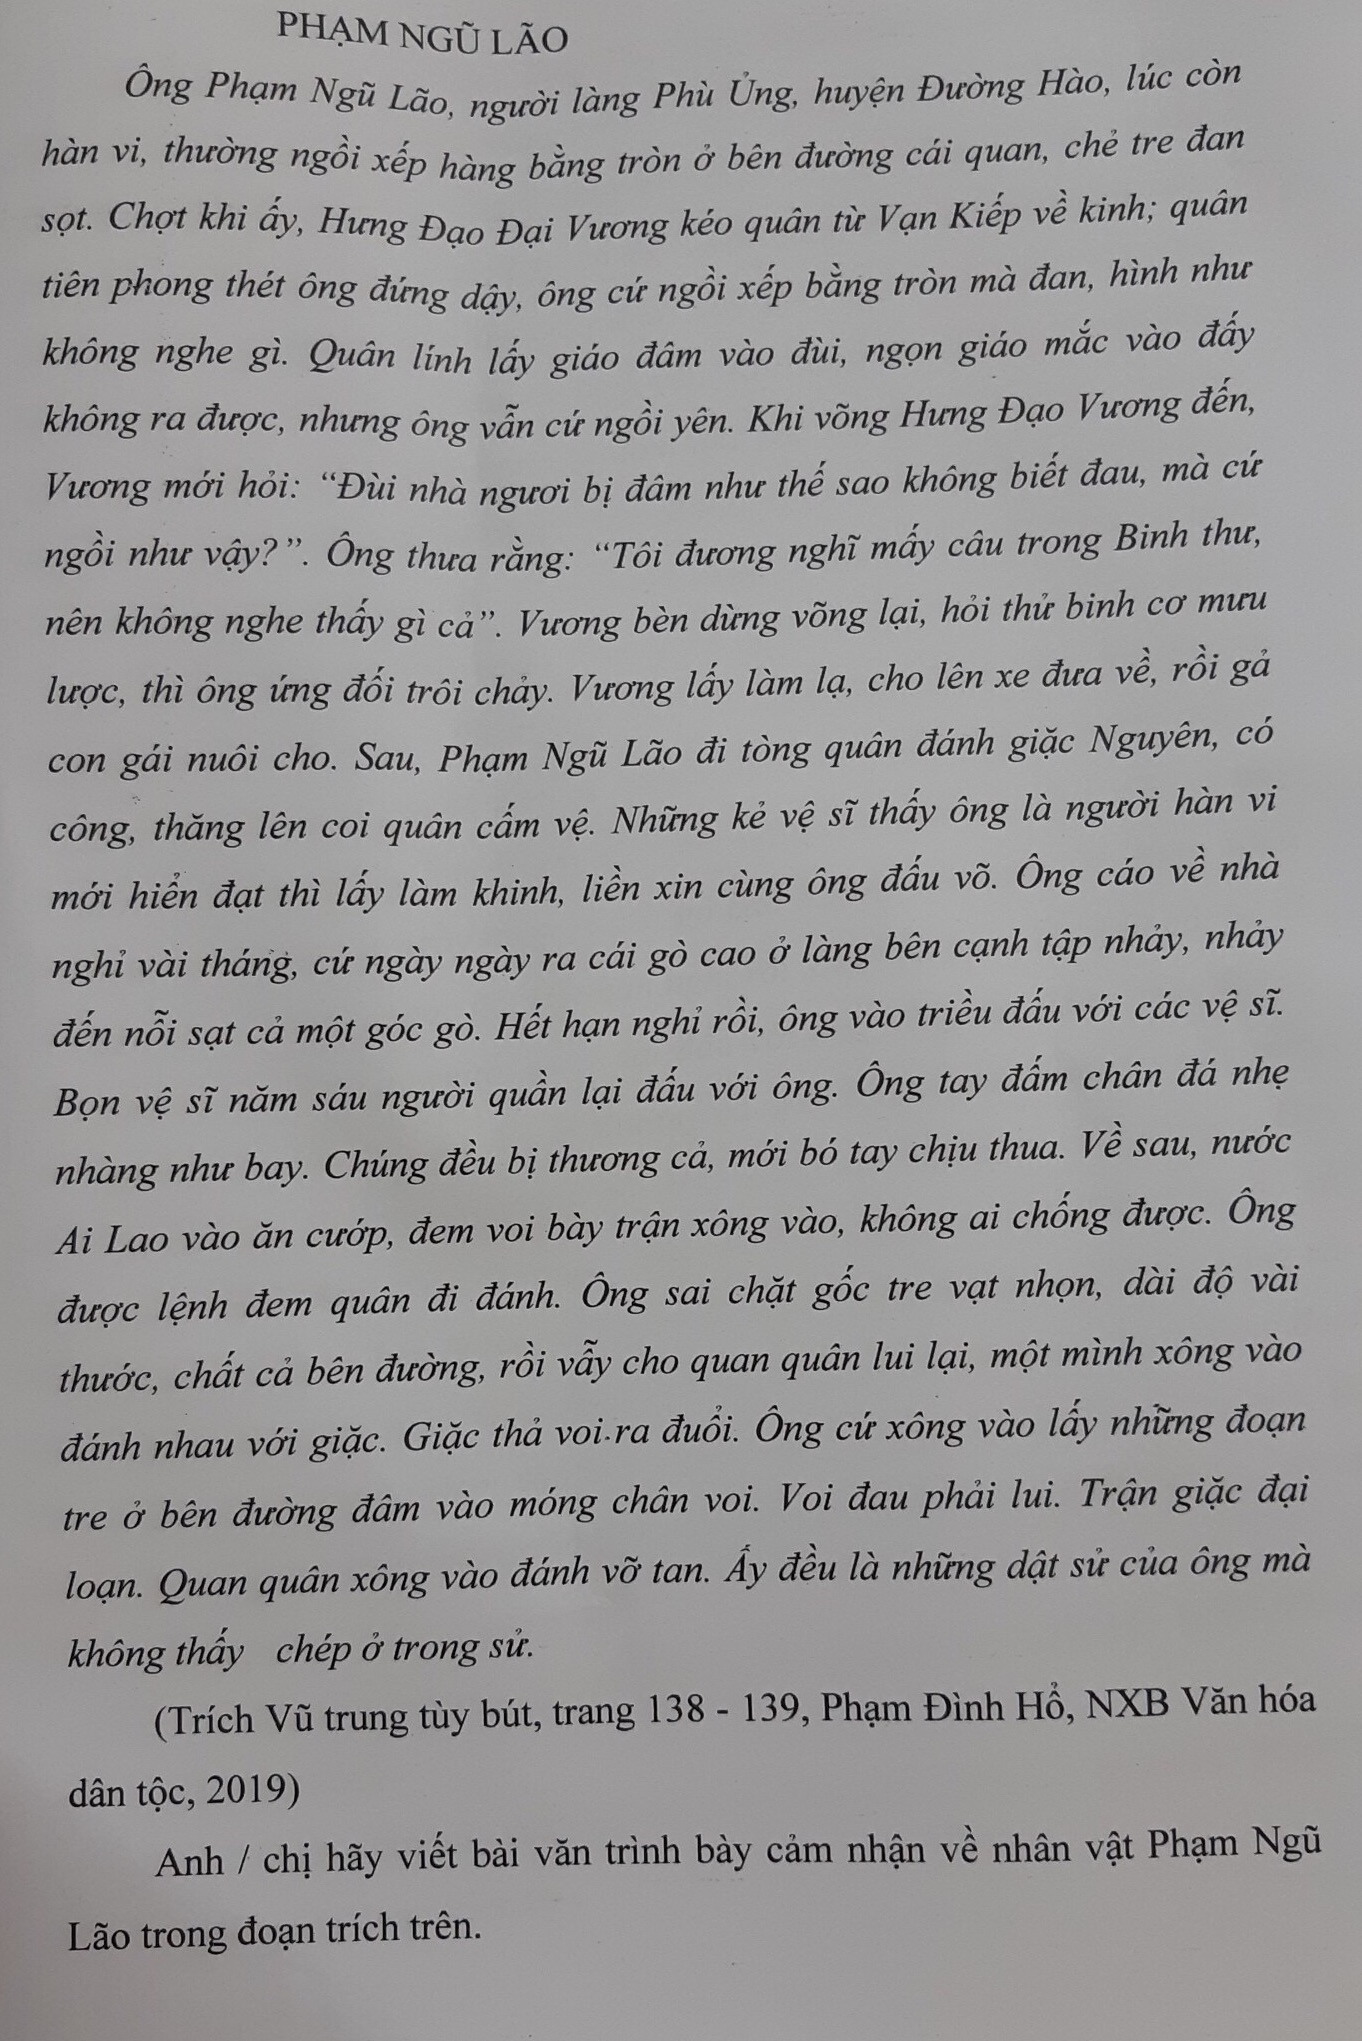 PHẠM NGŨ LÃO
Ông Phạm Ngũ Lão, người làng Phù Ủng, huyện Đường Hào, lúc còn
hàn vi, thường ngồi xếp hàng bằng tròn ở bên đường cái quan, chẻ tre đan
sọt. Chợt khi ấy, Hưng Đạo Đại Vương kéo quân từ Vạn Kiếp về kinh; quân
tiên phong thét ông đứng dậy, ông cứ ngồi xếp bằng tròn mà đan, hình như
không nghe gì. Quân lính lấy giáo đâm vào đùi, ngọn giáo mắc vào đấy
không ra được, nhưng ông vẫn cứ ngồi yên. Khi võng Hưng Đạo Vương đến,
Vương mới hỏi: “Đùi nhà ngươi bị đâm như thế sao không biết đau, mà cứ
ngồi như vậy?”. Ông thưa rằng: “Tôi đương nghĩ mấy câu trong Binh thư,
nên không nghe thấy gì cả”. Vương bèn dừng võng lại, hỏi thử binh cơ mưu
lược, thì ông ứng đối trôi chảy. Vương lấy làm lạ, cho lên xe đưa về, rồi gả
con gái nuôi cho. Sau, Phạm Ngũ Lão đi tòng quân đánh giặc Nguyên, có
công, thăng lên coi quân cấm vệ. Những kẻ vệ sĩ thấy ông là người hàn vi
mới hiển đạt thì lấy làm khinh, liền xin cùng ông đấu võ. Ông cáo về nhà
nghỉ vài tháng, cứ ngày ngày ra cái gò cao ở làng bên cạnh tập nhảy, nhảy
đến nỗi sạt cả một góc gò. Hết hạn nghỉ rồi, ông vào triều đấu với các vệ sĩ.
Bọn vệ sĩ năm sáu người quần lại đấu với ông. Ông tay đấm chân đá nhẹ
nhàng như bay. Chúng đều bị thương cả, mới bó tay chịu thua. Về sau, nước
Ai Lao vào ăn cướp, đem voi bày trận xông vào, không ai chống được. Ông
được lệnh đem quân đi đánh. Ông sai chặt gốc tre vạt nhọn, dài độ vài
thước, chất cả bên đường, rồi vẫy cho quan quân lui lại, một mình xông vào
đánh nhau với giặc. Giặc thả voi ra đuổi. Ông cứ xông vào lấy những đoạn
tre ở bên đường đâm vào móng chân voi. Voi đau phải lui. Trận giặc đại
loạn. Quan quân xông vào đánh vỡ tan. Ấy đều là những dật sử của ông mà
không thấy chép ở trong sử.
(Trích Vũ trung tùy bút, trang 138 - 139, Phạm Đình Hổ, NXB Văn hóa
dân tộc, 2019)
Anh / chị hãy viết bài văn trình bày cảm nhận về nhân vật Phạm Ngũ
Lão trong đoạn trích trên.